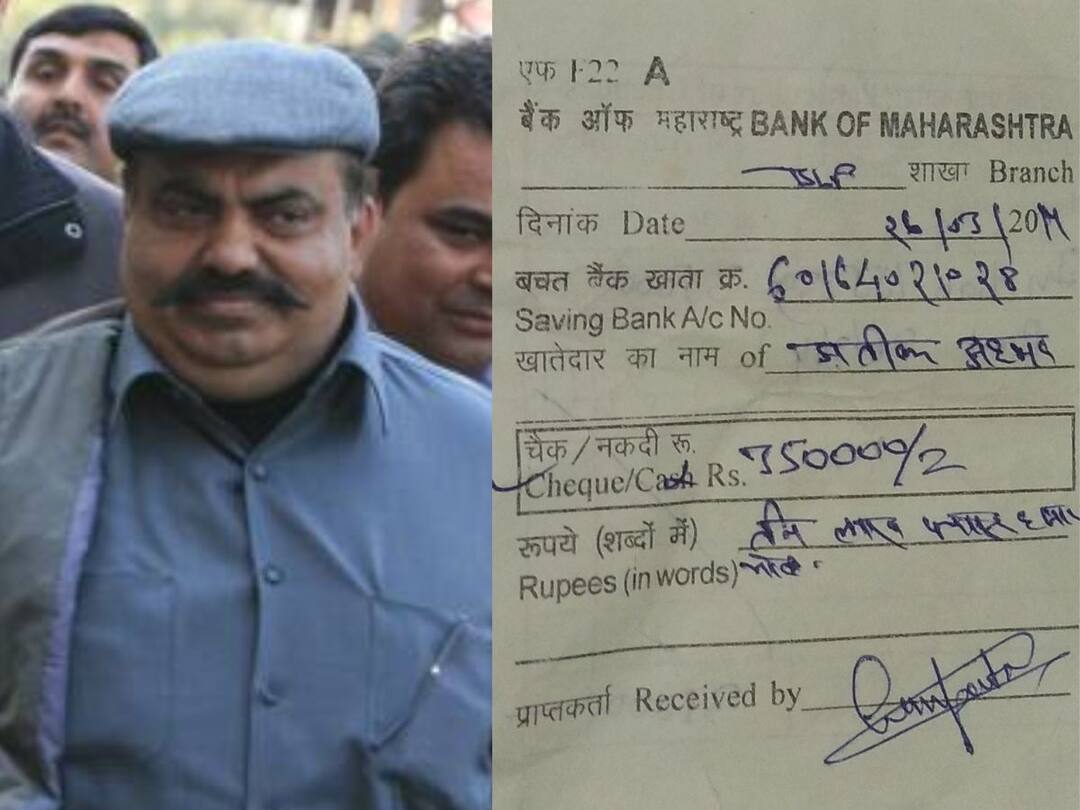 एफ 1-22 A
बैंक ऑफ महाराष्ट्र BANK OF MAHARASHTRA
शाखा Branch
दिनांक Date 26/03/20
बचत बैंक खाता क्र. 60164021028
Saving Bank A/c No.
खातेदार का नाम of अतीक अहमद
चैक / नकदी रू.
Cheque/Cash Rs. 350000/-
रूपये (शब्दों में) तीन लाख पचास हजार
Rupees (in words) मात्र
प्राप्तकर्ता Received by